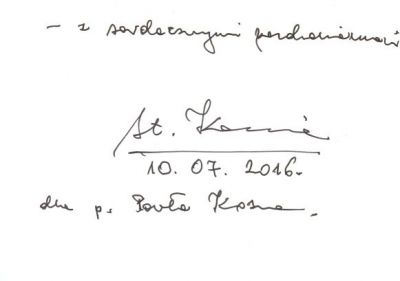 - z serdecznymi pozdrowieniami
St.
10. 07. 2016.
dla p. Pawła